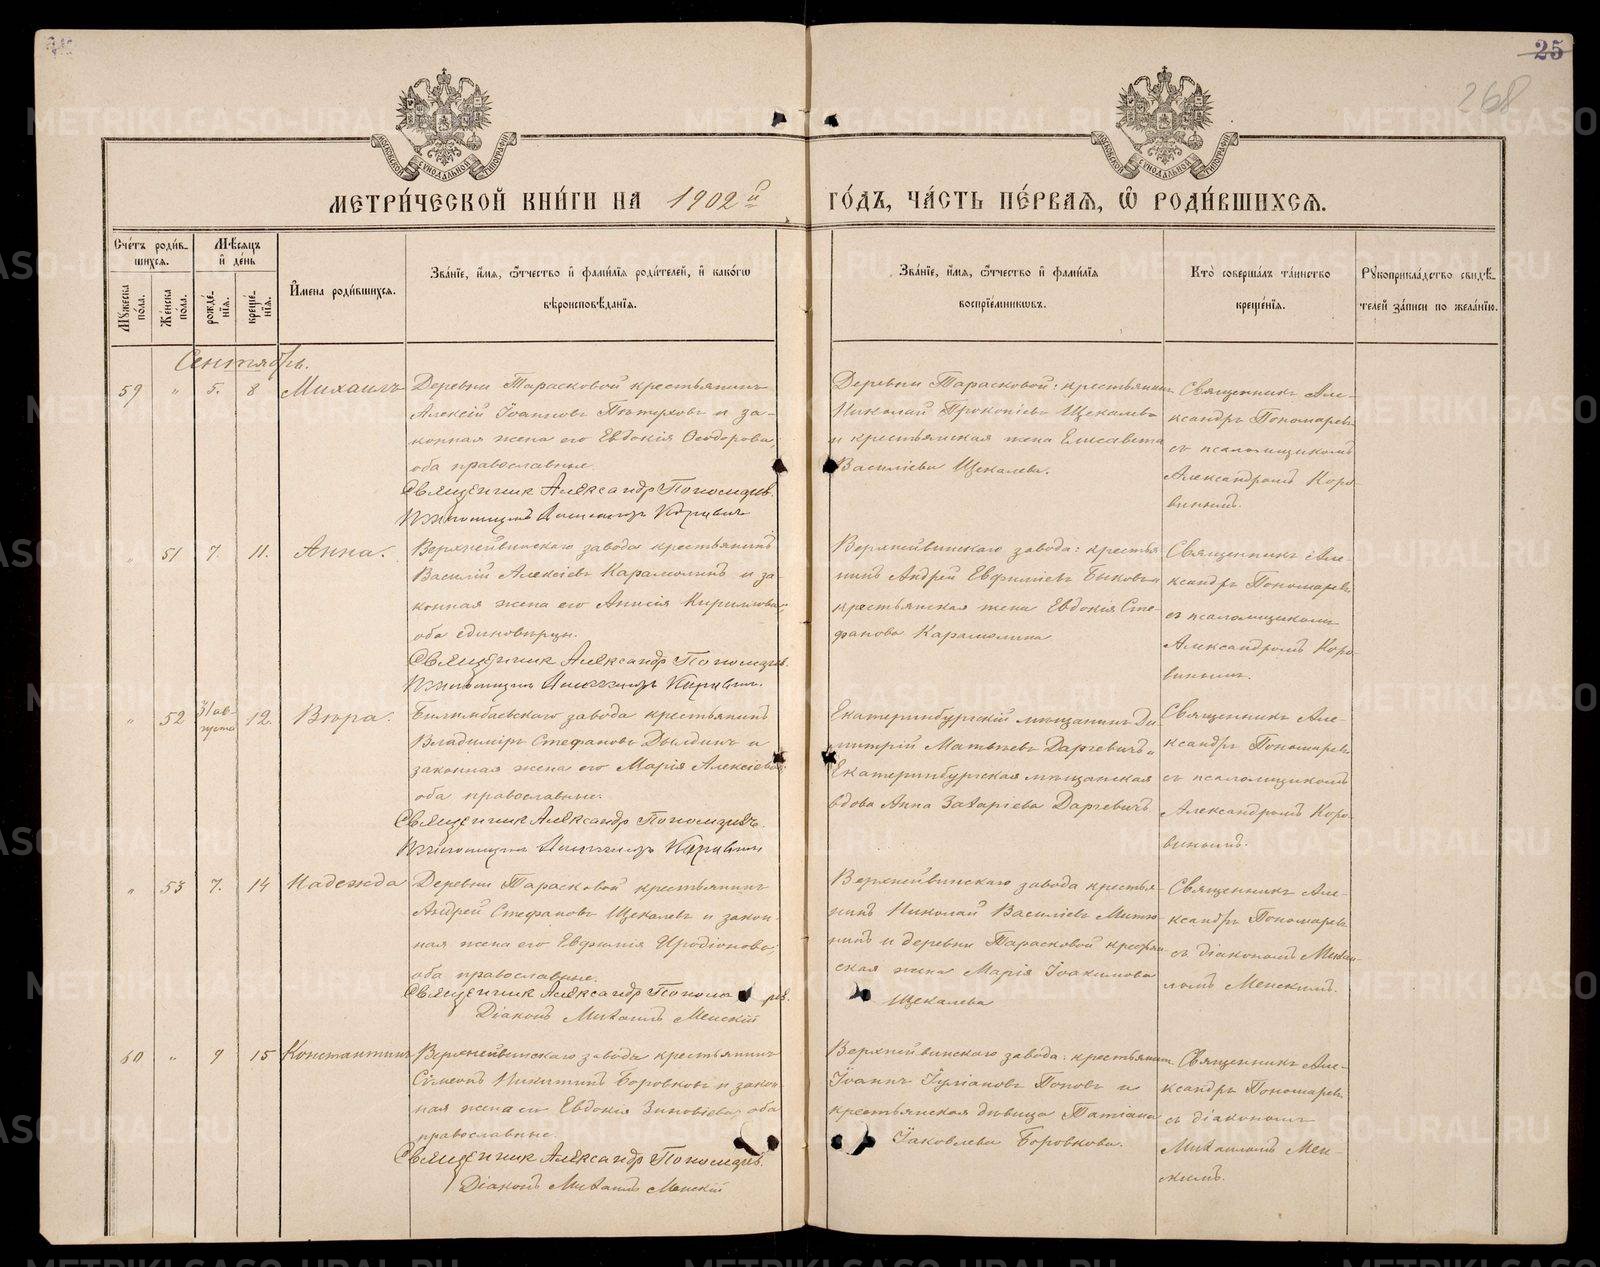 25
268
МОСКОВСКОЙ СѴНОДАЛЬНОЙ ТИПОГРАФІИ
МОСКОВСКОЙ СѴНОДАЛЬНОЙ ТИПОГРАФІИ
МЕТРИ́ЧЕСКОЙ КНИ́ГИ НА 1902й ГО́ДЪ, ЧА́СТЬ ПЕ́РВАѦ, Ѽ РОДИ́ВШИХСѦ.
Сче́тъ роди́вшихсѧ.
Мѣ́сѧцъ и҆ де́нь
Мꙋ́жеска по́ла.
Же́нска по́ла.
рожде́нїѧ.
креще́нїѧ.
И҆́мена роди́вшихсѧ.
Зва́нїе, и҆́мѧ, ѻ҆́тчество и҆ фами́лїѧ роди́телей, и҆ како́гѡ
вѣроисповѣ́данїѧ.
Зва́нїе, и҆́мѧ, ѻ҆́тчество и҆ фами́лїѧ
воспрїе́мникѡвъ.
Кто̀ соверша́лъ та́инство
креще́нїѧ.
Рꙋкоприкла́дство свидѣ́-
телей за́писи по жела́нїю.
Сентябрь.
59 " 5. 8 Михаилъ
Деревни Тарасковой крестьянинъ
Алексій Іоанновъ Пѣтуховъ и за-
конная жена его Евдокія Ѳеодорова,
оба православные.
Священник Александр Пономарев.
Псаломщикъ Александръ Коровинъ
Деревни Тарасковой: крестьянинъ
Николай Прокопіевъ Щекалевъ
и крестьянская жена Елисавета
Василіева Щекалева.
Священникъ Але-
ксандръ Пономаревъ
съ псаломщикомъ
Александромъ Коро-
винымъ.
" 51 7. 11. Анна.
Верхнейвинскаго завода крестьянинъ
Василій Алексіевъ Карамолинъ и за-
конная жена его Анисія Кириллова,
оба единовѣрцы.
Священник Александр Пономарев.
Псаломщикъ Александръ Коровинъ.
Верхнейвинскаго завода: крестья
нинъ Андрей Евфиміевъ Быковъ и
крестьянская жена Евдокія Сте-
фанова Карамолина
Священникъ Але-
ксандръ Пономаревъ
съ псаломщикомъ
Александромъ Коро-
винымъ.
" 52 31 ав-
густа 12. Вѣра.
Билимбаевскаго завода крестьянинъ
Владиміръ Стефановъ Дылдинъ и
законная жена его Марія Алексіева,
оба православные.
Священник Александр Пономарев.
Псаломщикъ Александръ Коровинъ
Екатеринбургскій мѣщанинъ Ди
митрій Матвѣевъ Даргевичъ и
Екатеринбургская мѣщанская
вдова Анна Захаріева Даргевичъ
Священникъ Але-
ксандръ Пономаревъ
съ псаломщикомъ
Александромъ Коро-
винымъ.
" 53 7. 14 Надежда
Деревни Тарасковой крестьянинъ
Андрей Стефановъ Щекалевъ и закон-
ная жена его Евфимія Иродіонова,
оба православные.
Священник Александр Пономарев.
Діаконъ Михаилъ Менскій
Верхнейвинскаго завода крестья-
нинъ Николай Василіевъ
и деревни Тарасковой крестьян
ская жена Марія Іоакимова
Щекалева
Священникъ Але-
ксандръ Пономаревъ
съ діакономъ Михаи-
ломъ Менскимъ.
60 " 9 15 Константинъ
Верхнейвинскаго завода крестьянинъ
Сѵмеонъ Никитинъ Боровковъ и закон-
ная жена его Евдокія Зиновіева, оба
православные.
Священник Александр Пономарев.
Діаконъ Михаилъ Менскій
Верхнейвинскаго завода: крестьянинъ
Іоаннъ Іуліановъ Поповъ и
крестьянская дѣвица Татіана
Іаковлева Боровкова.
Священникъ Але-
ксандръ Пономаревъ
съ діакономъ
Михаиломъ Мен-
скимъ.
METRIKI.GASO-URAL.RU